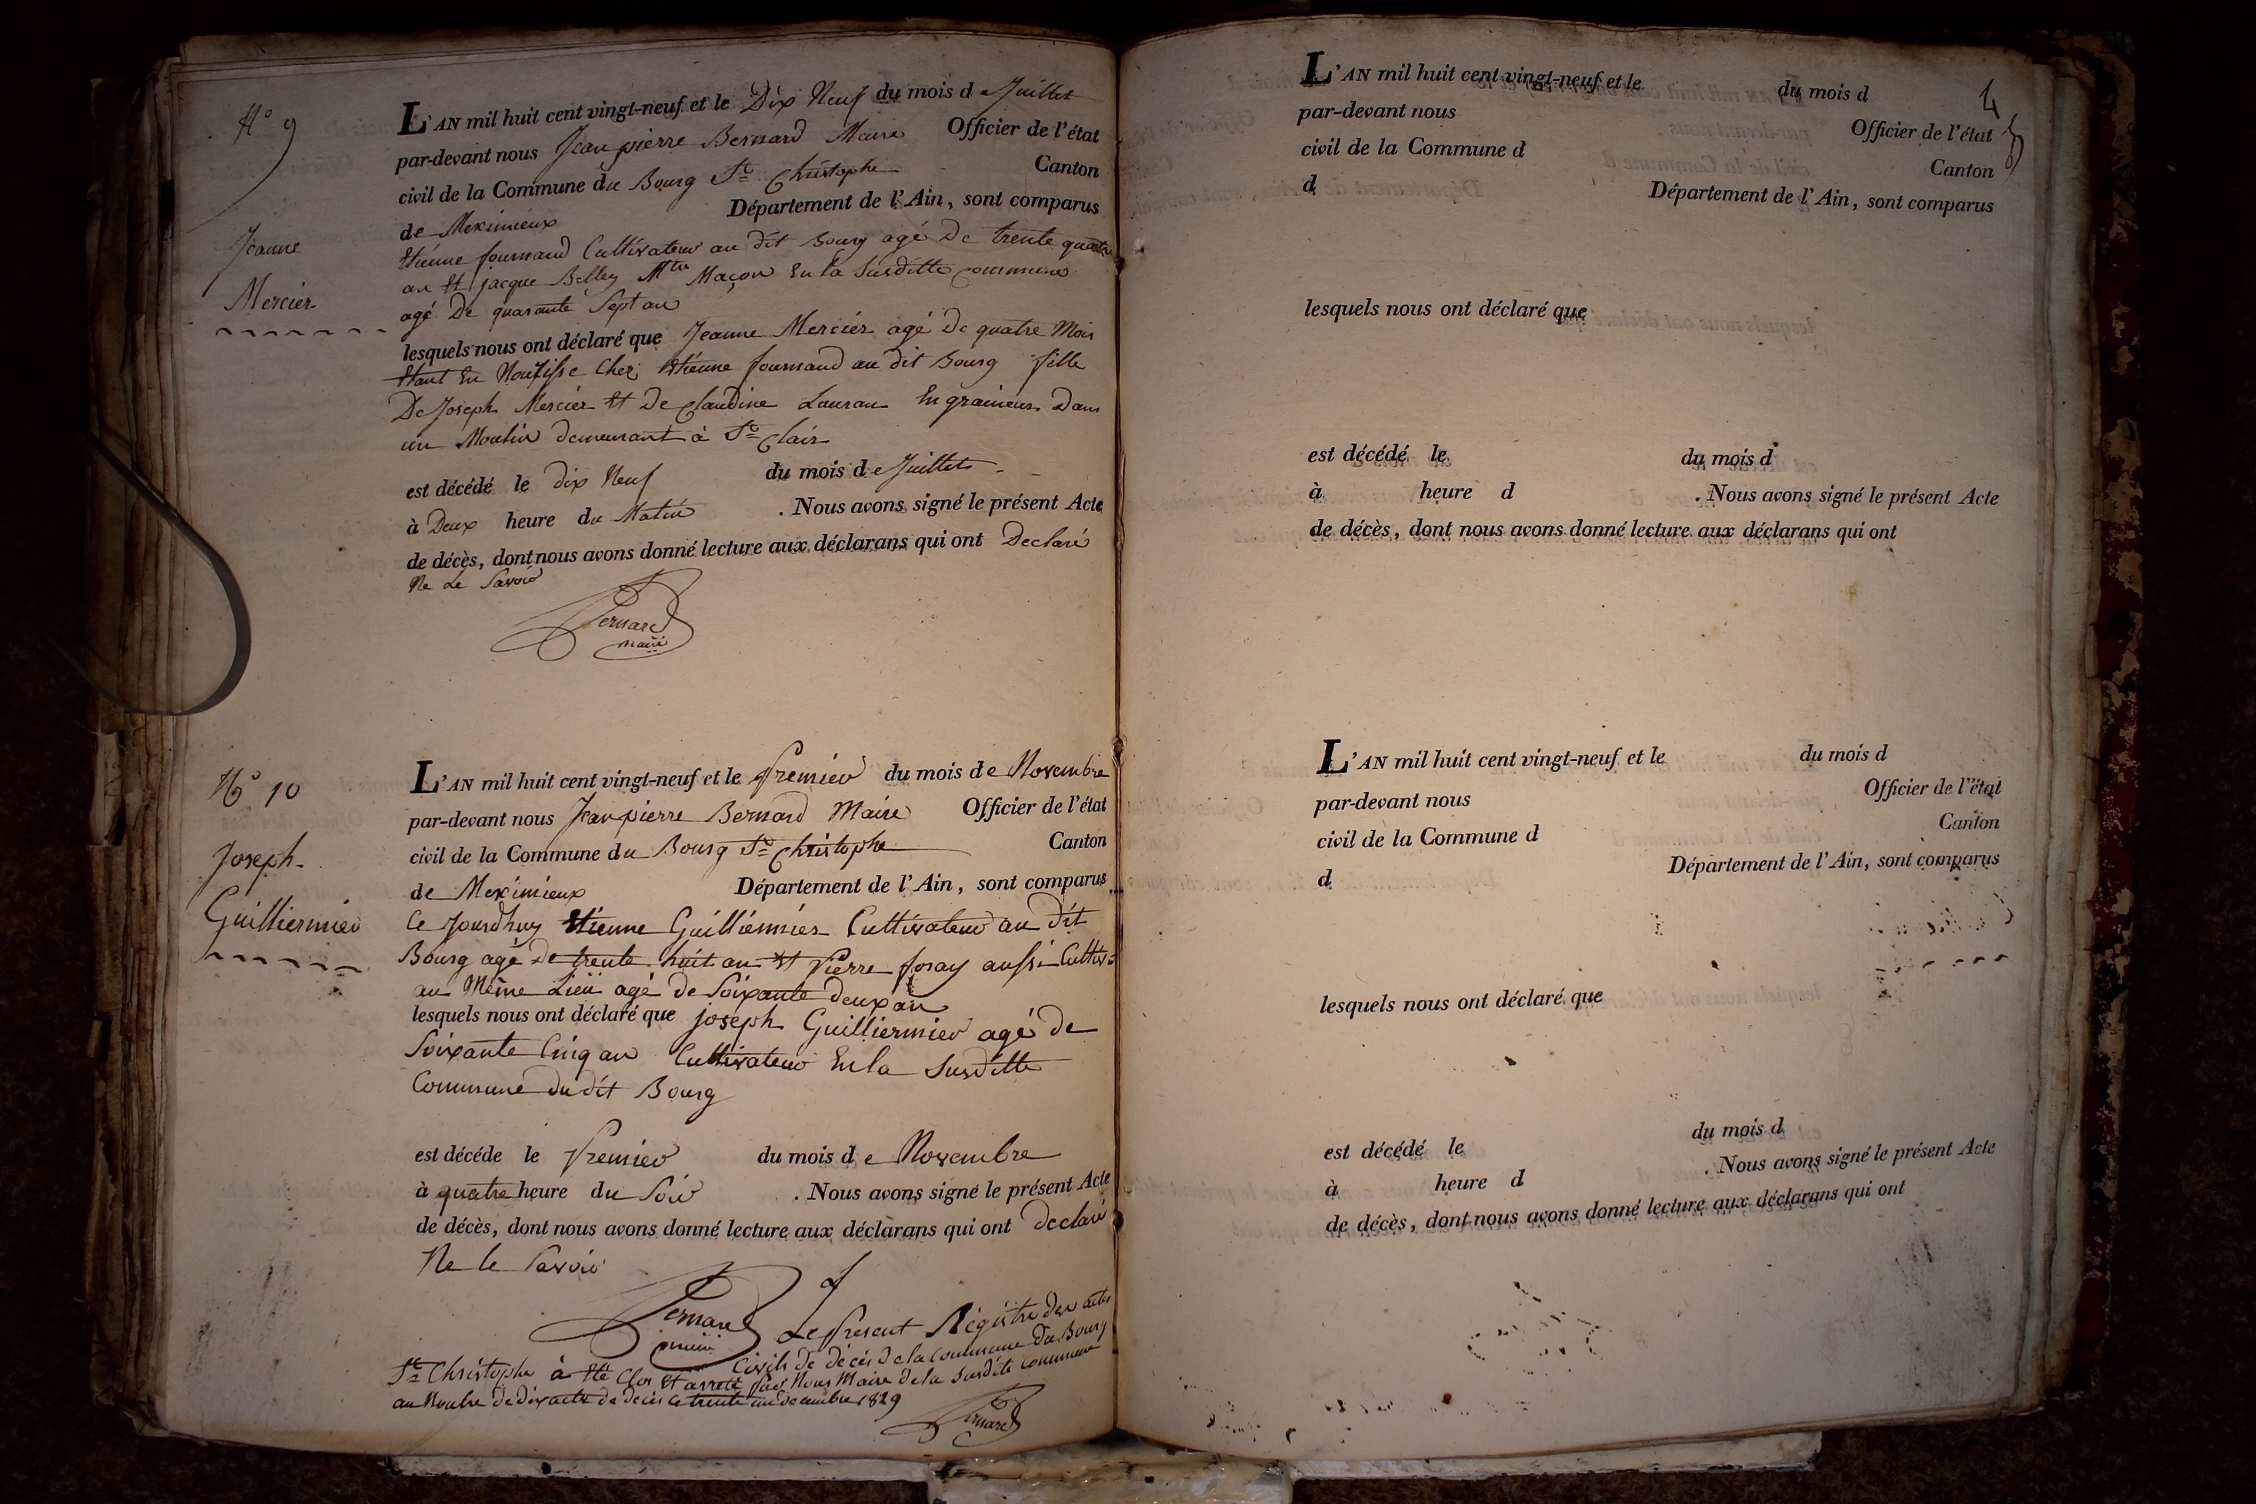 N° 9
Jeanne
Mercier
L'AN mil huit cent vingt-neuf et le Dix Neuf du mois de Juillet
par-devant nous Jean pierre Bernard Maire Officier de l'état
civil de la Commune du Bourg St Christophe Canton
de Meximieux Département de l'Ain, sont comparus
Etienne fournand Cultivateur au dit Bourg agé De trente quatre
an Et jacque Belley Mtre Maçon En la Susditte Commune
agé De quarante Sept an
lesquels nous ont déclaré que Jeanne Mercier agé De quatre Mois
Etant En Nourisse Chez Etienne fournand au dit Bourg fille
De Joseph Mercier Et De Claudine Lauran Engraineur Dans
un Moulin demeurant à St Clair
est décédé le dix Neuf du mois de Juillet
à Deux heure du Matin . Nous avons signé le présent Acte
de décès, dont nous avons donné lecture aux déclarans qui ont Declaré
Ne Le Savoir
Bernard
maire
N° 10
Joseph
Guilliermier
L'AN mil huit cent vingt-neuf et le Premier du mois de Novembre
par-devant nous Jean pierre Bernard Maire Officier de l'état
civil de la Commune du Bourg St Christophe Canton
de Meximieux Département de l'Ain, sont comparus
Ce Jourdhuy Etienne Guilliermier Cultivateur au dit
Bourg agé De trente huit an Et Pierre foray aussi Cultivr
au Même Lieu agé de Soixante deux an
lesquels nous ont déclaré que joseph Guilliermier agé de
Soixante Cinq an Cultivateur En la Susditte
Commune du dit Bourg
est décéde le Premier du mois de Novembre
à quatre heure du Soir . Nous avons signé le présent Acte
de décès, dont nous avons donné lecture aux déclarans qui ont declaré
Ne le Savoir
Bernard
maire
Le Present Régistre des actes
Civils de décès de la commune du Bourg
St Christophe à Eté Clos Et arreté par Nous Maire de la Susdite commune
au Nombre de dix actes de decès ce trente un decembre 1829
Bernard
4
L'AN mil huit cent vingt-neuf et le du mois d
par-devant nous Officier de l'état
civil de la Commune d Canton
d Département de l'Ain, sont comparus
lesquels nous ont déclaré que
est décédé le du mois d
à heure d . Nous avons signé le présent Acte
de décès, dont nous avons donné lecture aux déclarans qui ont
L'AN mil huit cent vingt-neuf et le du mois d
par-devant nous Officier de l'état
civil de la Commune d Canton
d Département de l'Ain, sont comparus
lesquels nous ont déclaré que
est décédé le du mois d
à heure d . Nous avons signé le présent Acte
de décès, dont nous avons donné lecture aux déclarans qui ont